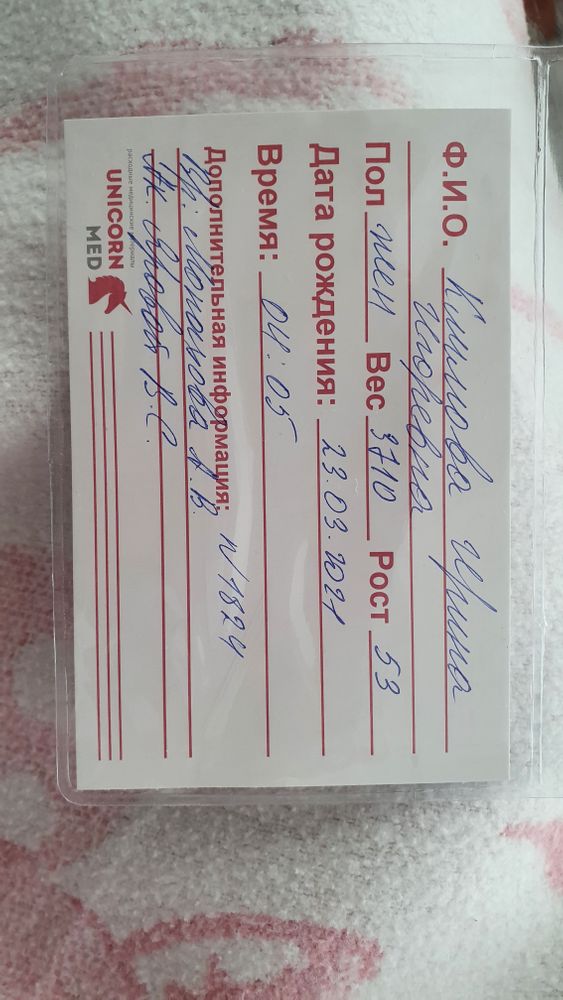 Ф.И.О. Климова Ирина
Игоревна
Пол жен Вес 3710 Рост 53
Дата рождения: 23.03.2021
Время: 04:05
Дополнительная информация: N 1824
Вр: Монахова А.В.
Ак. В.С.
расходные медицинские материалы
UNICORN
MED